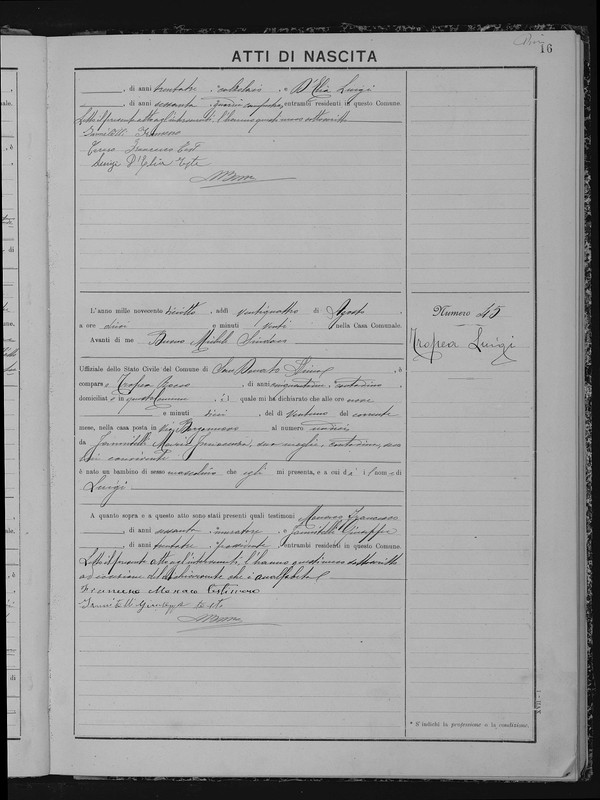 16
ATTI DI NASCITA
, di anni trentatre, calzolaio, e D'Elia Luigi
, di anni sessanta, entrambi residenti in questo Comune.
Letto il presente atto agl'intervenuti, l'hanno questi meco sottoscritto
Francesco Test
Luigi D'Elia Teste
L'anno mille novecento diciotto, addì ventiquattro di Agosto,
a ore dieci e minuti venti, nella Casa Comunale.
Avanti di me Bruno Michele Sindaco
Numero 45
Tropea Luigi
Uffiziale dello Stato Civile del Comune di San Donato Ninea, è
comparso Tropea, di anni cinquantuno, contadino,
domiciliato in questo Comune, il quale mi ha dichiarato che alle ore nove
e minuti dieci, del dì ventuno del corrente
mese, nella casa posta in Via al numero undici
da Iannitelli Maria Francesca, sua moglie, contadina, seco
lui convivente
è nato un bambino di sesso mascolino che egli mi presenta, e a cui dà il nome di
Luigi
A quanto sopra e a questo atto sono stati presenti quali testimoni Monaco Francesco
, di anni sessanta, muratore, e Iannitelli Giuseppe
, di anni, entrambi residenti in questo Comune.
Letto il presente atto agl'intervenuti, l'hanno questi meco sottoscritto
ad eccezione del dichiarante che è analfabeta
Francesco Monaco Testimone
Giuseppe teste
* S'indichi la professione o la condizione.